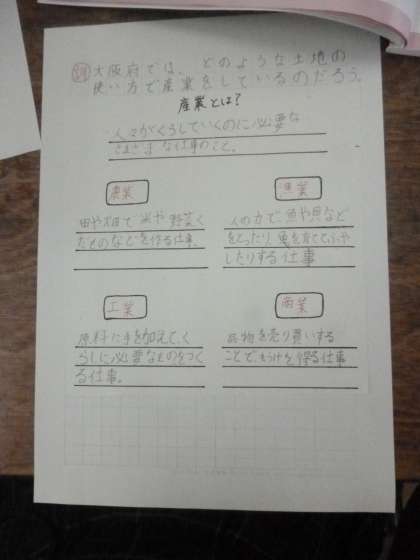 大阪府では、どのような土地の
使い方で産業をしているのだろう。
産業とは?
人々がくらしていくのに必要な
さまざまな仕事のこと。
農業
田や畑で米や野菜く
だものなどを作る仕事。
漁業
人の力で魚や貝など
をとったり、魚を育ててふや
したりする仕事
工業
原料に手を加えて、く
らしに必要なものをつく
る仕事。
商業
品物を売り買いする
ことで、もうけを得る仕事